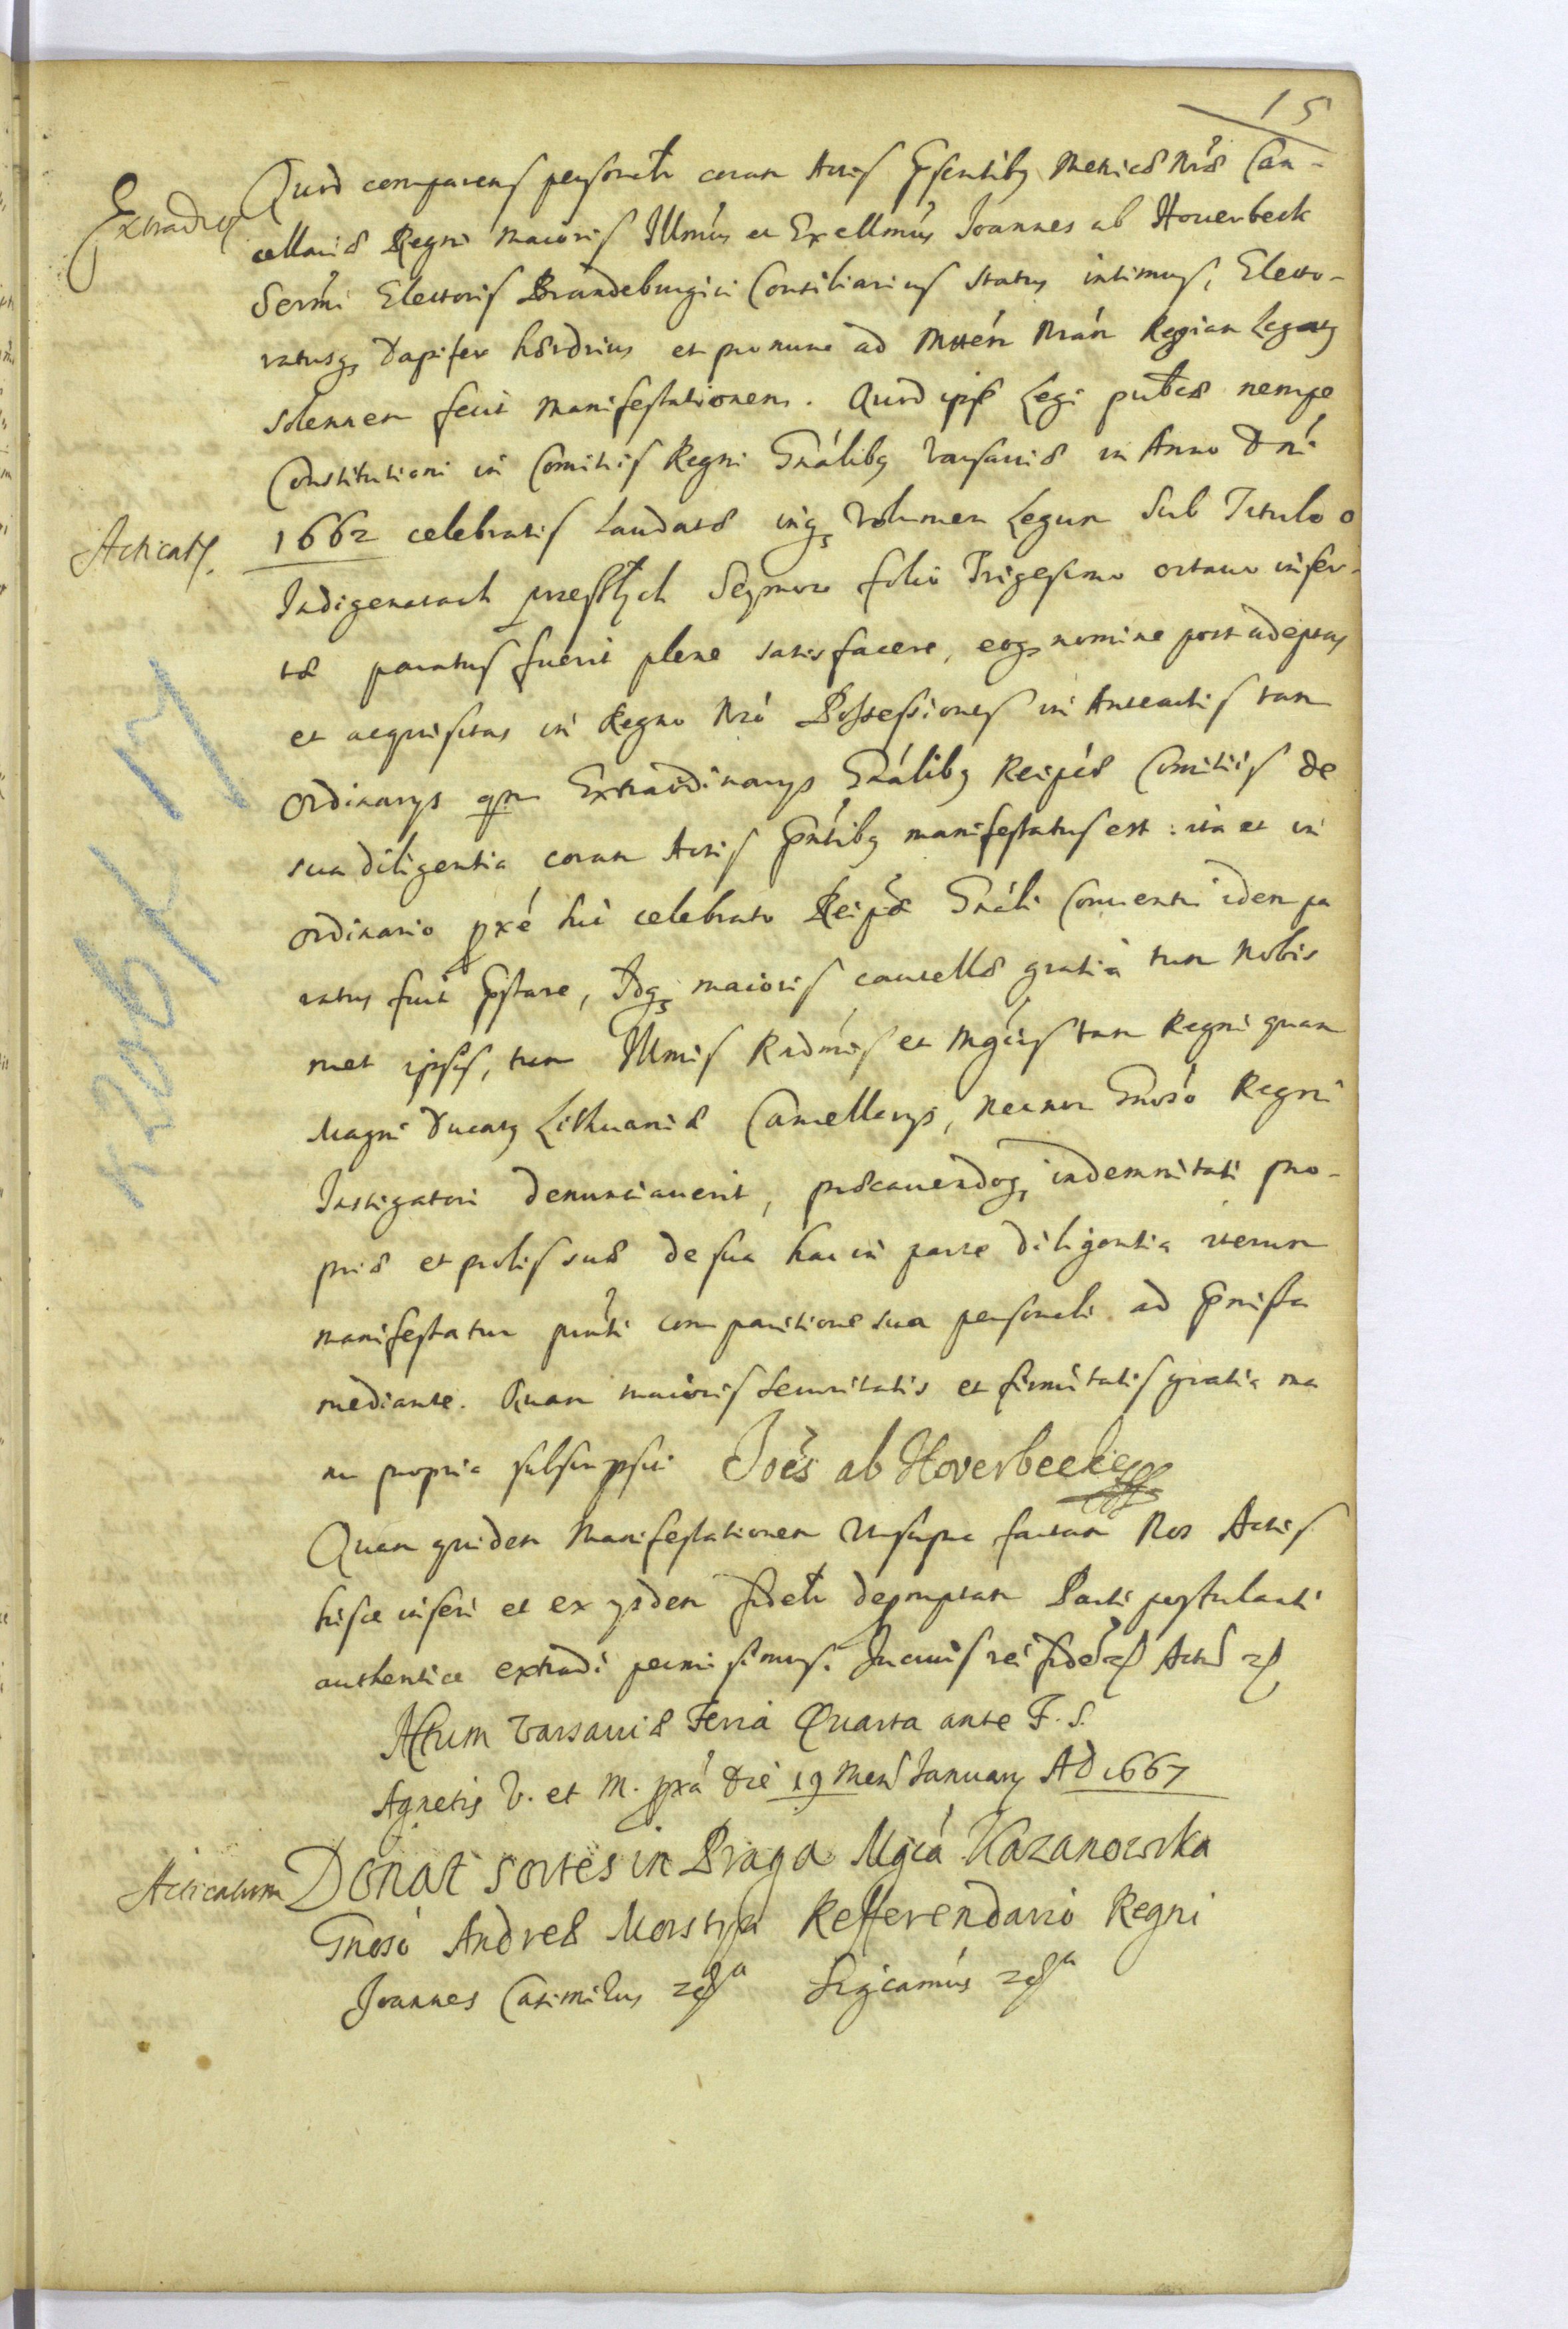 15
Extradit
Quod comparens personalr coram Actis Psentibq Metricæ Nræ Can-
cellariæ Regni Maioris Illmus et Excellmus Joannes ab Houerbeck
Sermi Electoris Brandeburgici Consiliarius Status intimus, Electo-
ratusq Dapifer hærdrius et pro nunc ad Mttem Nram Regiam Legatus
solennem fecit Manifestationem. Quod ipse Legi publcæ nempe
Constitutioni in Comitiis Regni Gnalibq Varsauiæ in Anno Dni
Acticat.
1662 celebratis Laudatæ inq Volumen Legum Sub Titulo o
Indigenatach przeszłych Seymow folio Trigesimo octauo inser-
tæ paratus fuerit plene satisfacere, eoq nomine post adeptas
et acquisitas in Regno Nro Possessiones in Anteactis tam
Ordinarys qm Extraordinarys Gnalibq Reipcæ Comitiis de
sua diligentia coram Actis Pntibq manifestatus est: ita et in
ordinario pxe hic celebrato Reipcæ Gnali Conuentu idem pa
ratus fuit Pstare, Idq maioris cautellæ gratia tum Nobis
met ipsis, tum Illmis Rndmis et Mgcis tam Regni quam
Magni Ducatus Lithuaniæ Cancellarys, Necnon Gnoso Regni
Instigatori denunciauerit, præcauendoq indemnitati pro-
priæ et prolis suæ de sua hac in parte diligentia iterum
manifestatur pnti comparitione sua personali ad Pmissa
mediante. Quam maioris Securitatis et firmitatis gratia ma
nu propria subscripsit Joes ab Hoverbeeke
Quam quidem Manifestationem Vtsupra factam Nos Actis
hisce inseri et ex ysdem fidelr depromptam Parti postulanti
authentice extradi permisimus. In cuius rei fidem Actum
Actum Varsauiæ Feria Quarta ante F. S.
Agnetis V. et M. pxa Die 19 Mens January AD 1667
Acticatum
Donat sortes in Praga Mgca Kazanowska
Gnoso Andreæ Morstyn Refferendario Regni
Joannes Casimirus Sigcamus